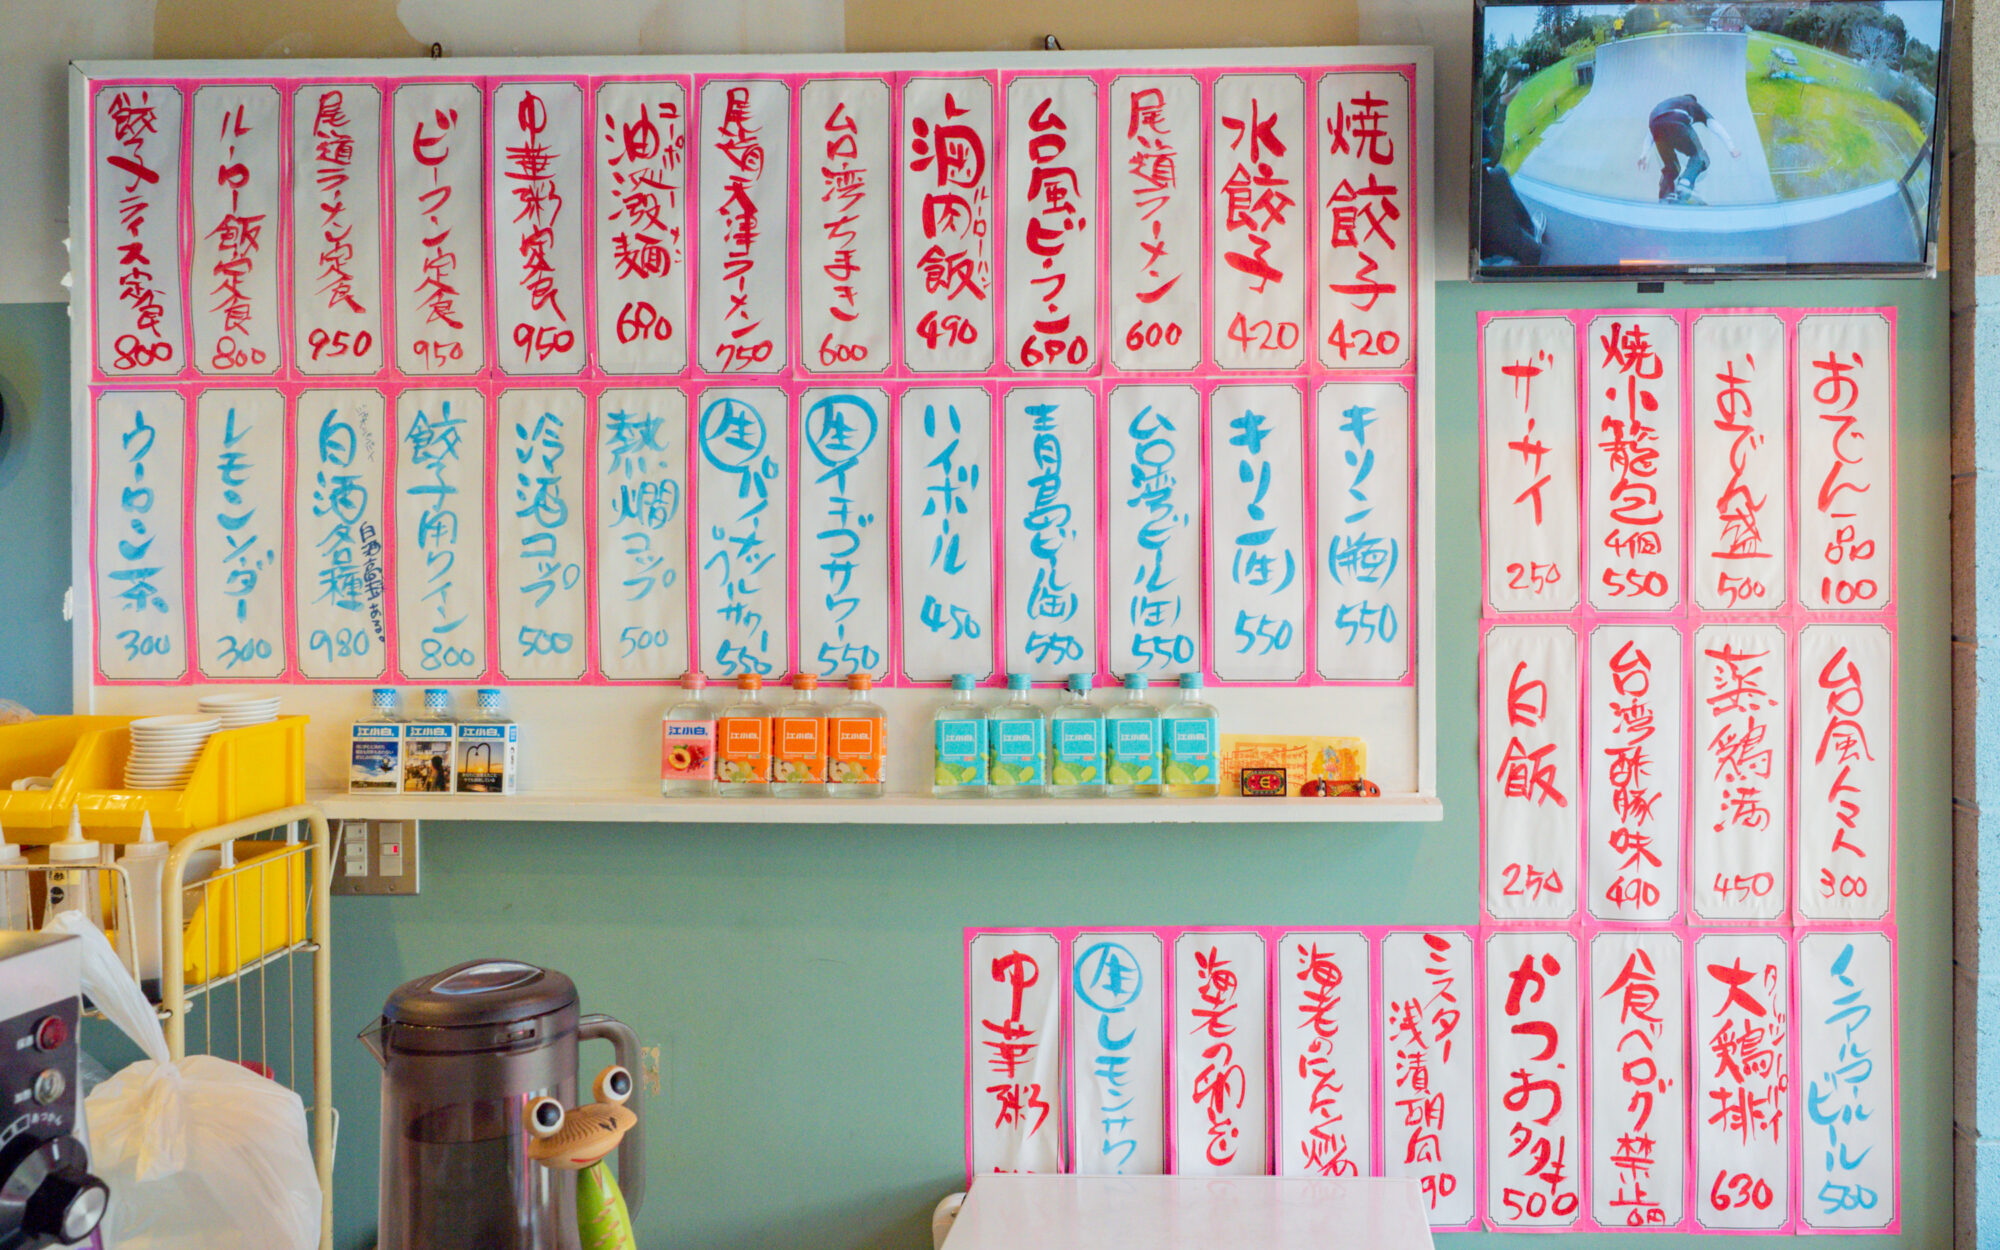 焼餃子 420
水餃子 420
尾道ラーメン 600
台風ビーフン 690
滷肉飯 ルーローハン 490
台湾ちまき 600
尾道天津ラーメン 750
油溌麺 690
中華粥定食 950
ビーフン定食 950
尾道ラーメン定食 950
ルーロー飯定食 800
餃子ライス定食 800
キリン(瓶) 550
キリン(生) 550
台湾ビール(缶) 550
青島ビール(缶) 550
ハイボール 450
生イチゴサワー 550
生パイナップルサワー 550
熱燗コップ 500
冷酒コップ 500
餃子用ワイン 800
白酒各種 980
レモンソーダー 300
ウーロン茶 300
おでん一品 100
おでん盛 500
焼小籠包 4個 550
ザーサイ 250
台風キムチ 300
蒸鶏 450
台湾酢豚味 490
白飯 250
ノンアルコールビール 500
大鶏排 ダージーパイ 630
食べログ禁止 0円
かつお 500
ミスター浅漬胡瓜 90
海老のにんにく炒め
海老の
生レモンサワー
中華粥
江小白
江小白
江小白
江小白
江小白
江小白
江小白
江小白
江小白
江小白
江小白
江小白